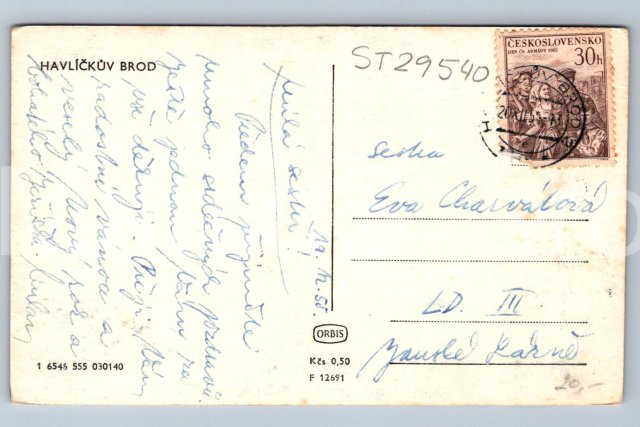 HAVLÍČKŮV BROD
ST29540
ČESKOSLOVENSKO
DEN ČS. ARMÁDY 1955
30h
Milá sestři!
19. XII. 55.
Předem přijměte
mnoho srdečných pozdravů.
Ještě jednou Vám za
vše děkuji. Přeji Vám
radostné vánoce a
veselý Nový rok a
sestra
Eva Charvátová
LD. III
Janské Lázně
ORBIS
Kčs 0,50
F 12691
1 6546 555 030140
20,-